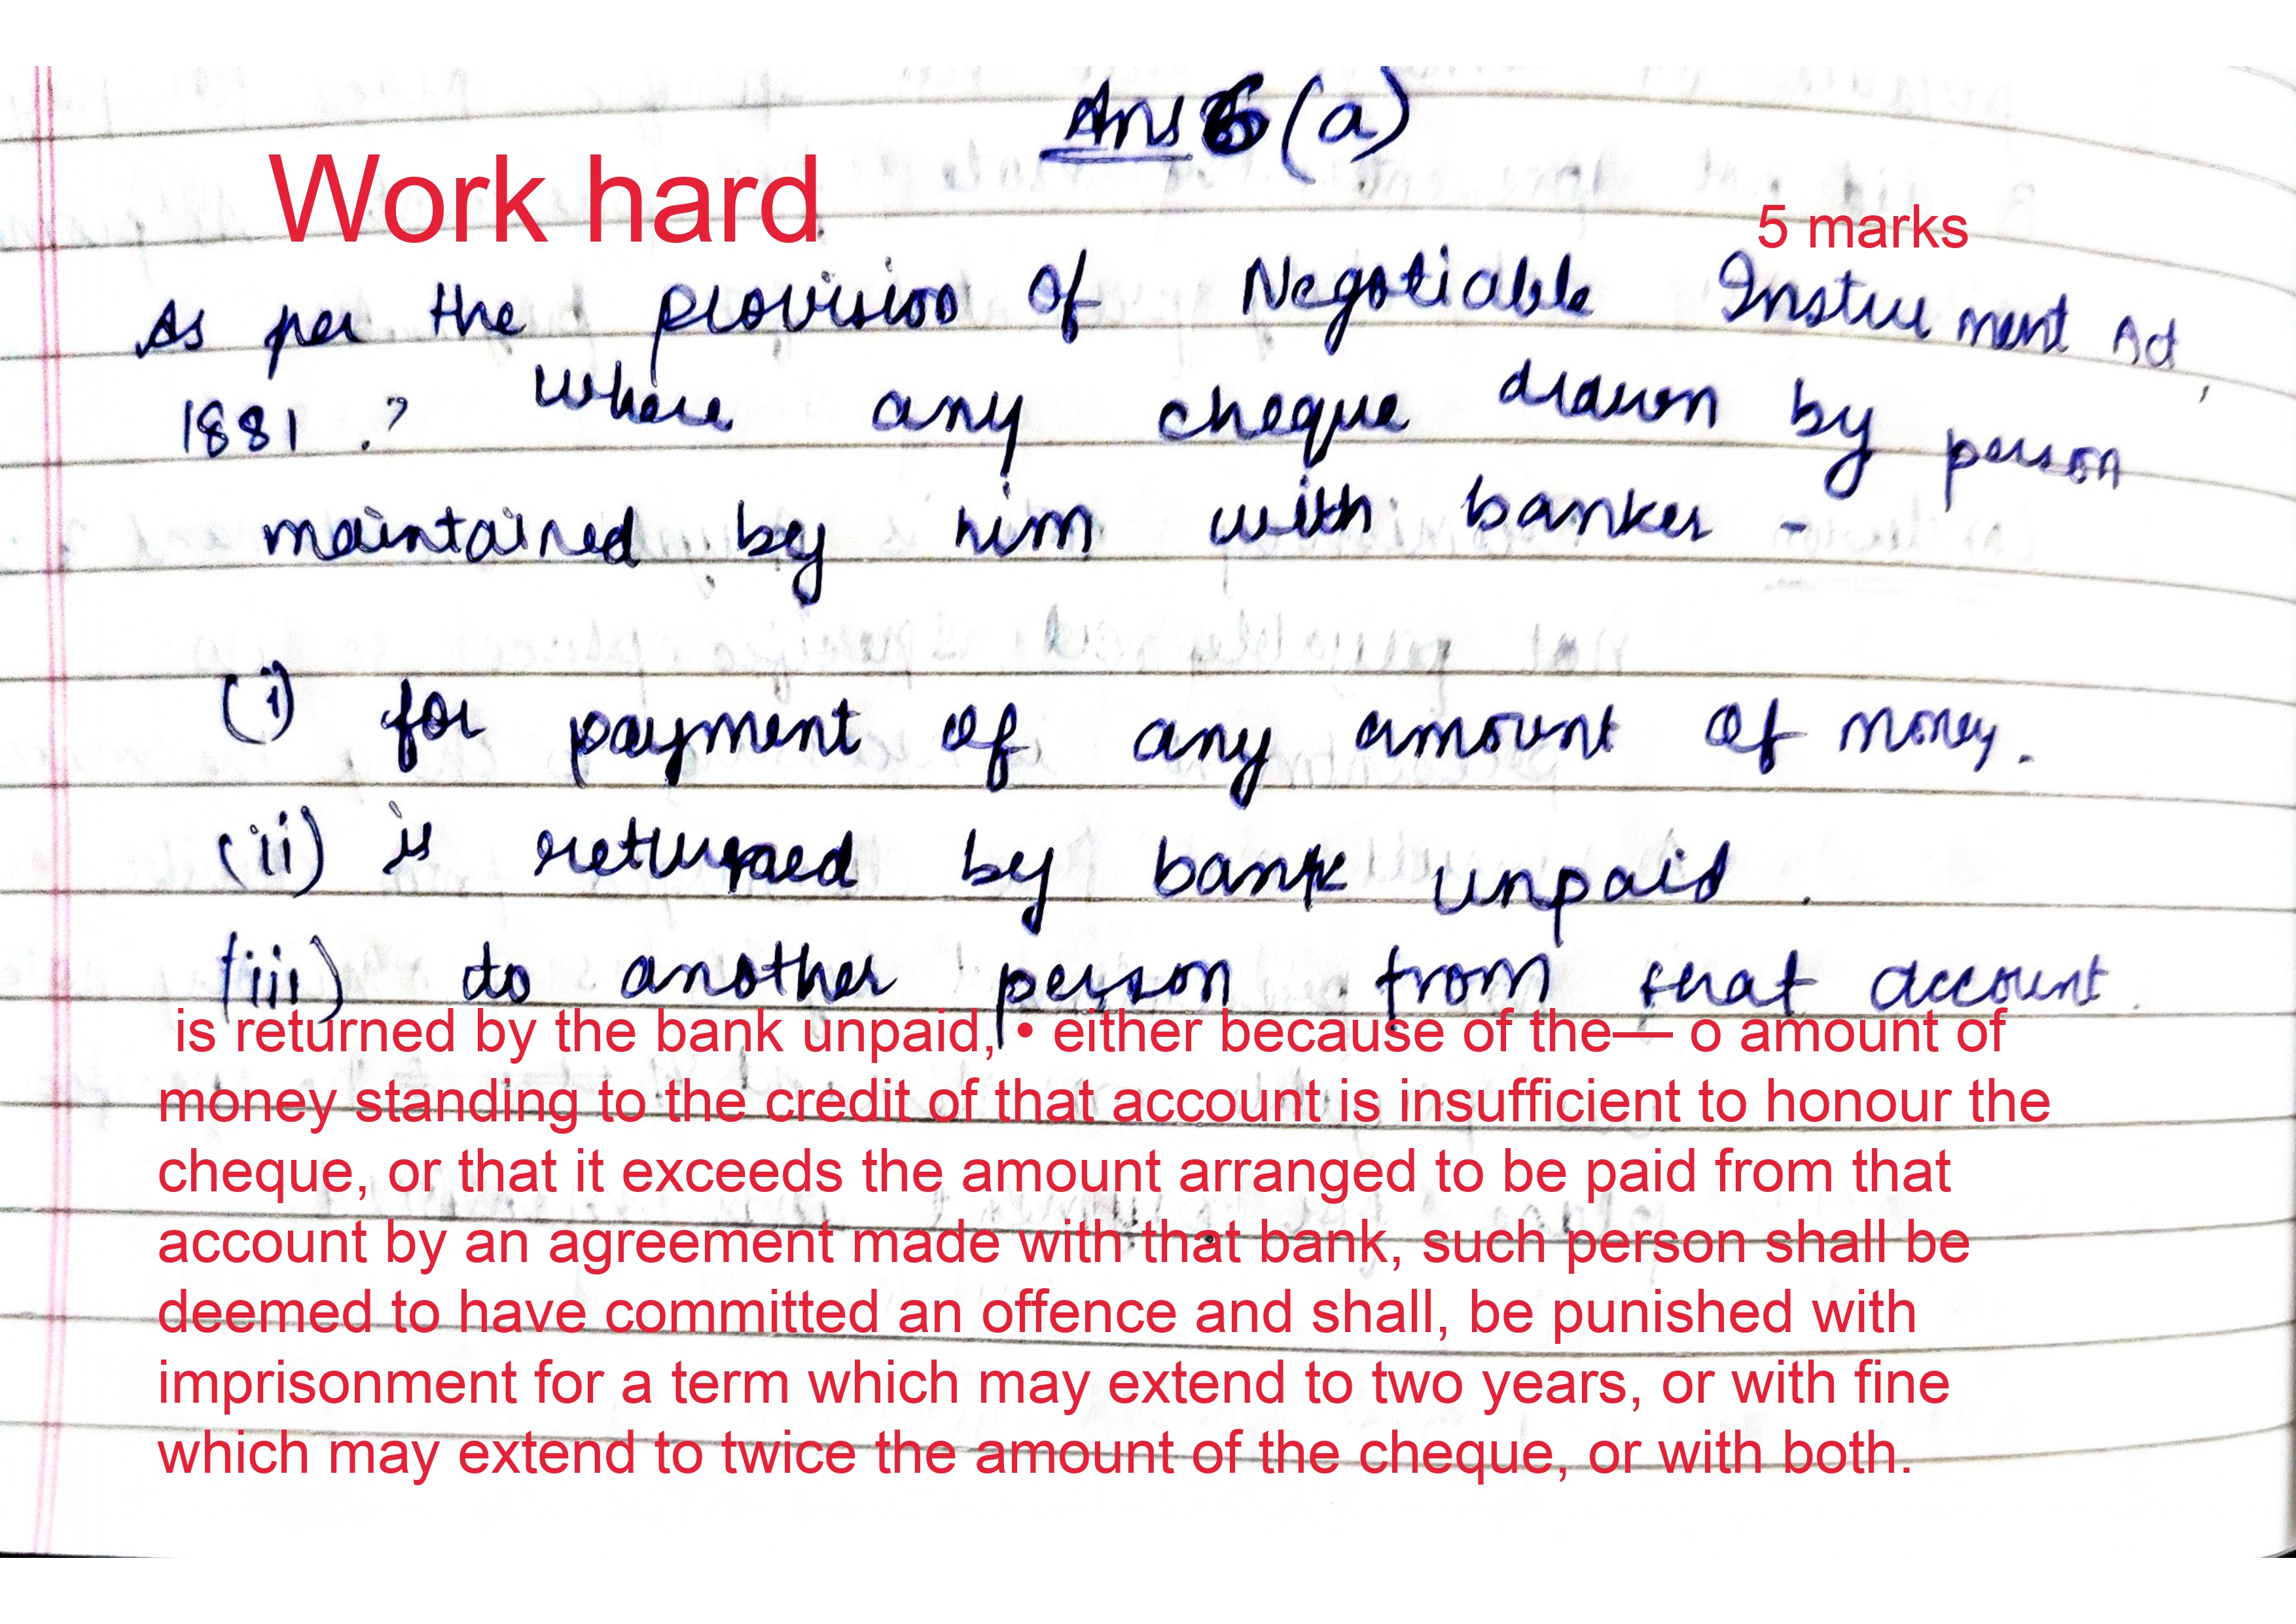 Ans 6 (a)
Work hard
5 marks
As per the provision of Negotiable Instrument Act,
1881 , where any cheque drawn by person
maintained by him with banker -
(i) for payment of any amount of money.
(ii) is returned by bank unpaid.
(iii) to another person from that account.
is returned by the bank unpaid, • either because of the— o amount of
money standing to the credit of that account is insufficient to honour the
cheque, or that it exceeds the amount arranged to be paid from that
account by an agreement made with that bank, such person shall be
deemed to have committed an offence and shall, be punished with
imprisonment for a term which may extend to two years, or with fine
which may extend to twice the amount of the cheque, or with both.